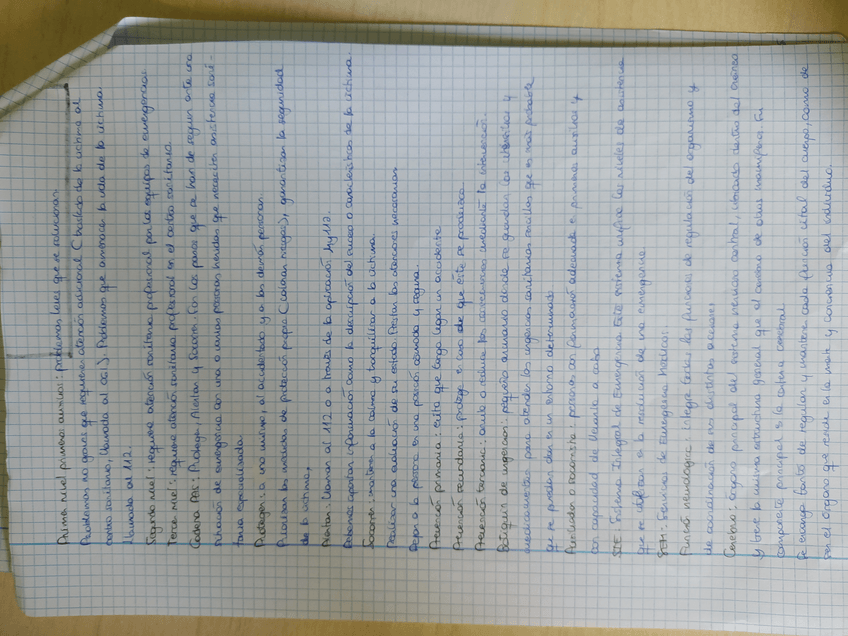 Primer nivel primeros auxilios: problemas leves que se solucionan.
Problemas no graves que requieren atención adicional (traslado de la víctima al
centro sanitario, llamada al 061). Problemas que amenace la vida de la víctima.
llamada al 112.
Segundo nivel: requiere atención sanitaria profesional por los equipos de emergencias.
Tercer nivel: requiere atención sanitaria profesional en el centro sanitario.
Cadena PAS: Proteger, Alertar y Socorrer. Son los pasos que se han de seguir ante una
situación de emergencia con una o varias personas heridas que necesiten asistencia sani-
taria especializada.
Proteger: a uno mismo, al accidentado y a las demás personas.
Priorizar las medidas de protección propia (valorar riesgos), garantizar la seguridad
de la víctima,
Alertar: llamar al 112 o a través de la aplicación My112.
Debemos aportar información como la descripción del suceso o características de la víctima.
Socorrer: mantener la calma y tranquilizar a la víctima.
Realizar una valoración de su estado. Prestar las atenciones necesarias.
Dejar a la persona en una posición cómoda y segura.
Prevención primaria: evita que tenga lugar un accidente
Prevención secundaria: protege en caso de que este se produzca.
Prevención terciaria: anula o reduce las consecuencias mediante la intervención.
Botiquín de urgencias: pequeño armario donde se guardan los utensilios y
medicamentos para atender las urgencias sanitarias sencillas que es más probable
que se puedan dar en un entorno determinado.
Auxiliador o socorrista: persona con formación adecuada en primeros auxilios y
con capacidad de llevarla a cabo.
SIE: Sistema Integral de Emergencia. Este sistema unifica los niveles de asistencia
que se ofrecen en la resolución de una emergencia.
SEM: Servicios de Emergencias Médicas.
Función neurológica: integra todas las funciones de regulación del organismo y
de coordinación de sus distintas acciones.
Cerebro: órgano principal del sistema nervioso central, situado dentro del cráneo
y tiene la misma estructura general que el cerebro de otros mamíferos. Su
componente principal es la corteza cerebral.
Se encarga tanto de regular y mantener cada función vital del cuerpo, como de
ser el órgano que reside en la mente y conciencia del individuo.